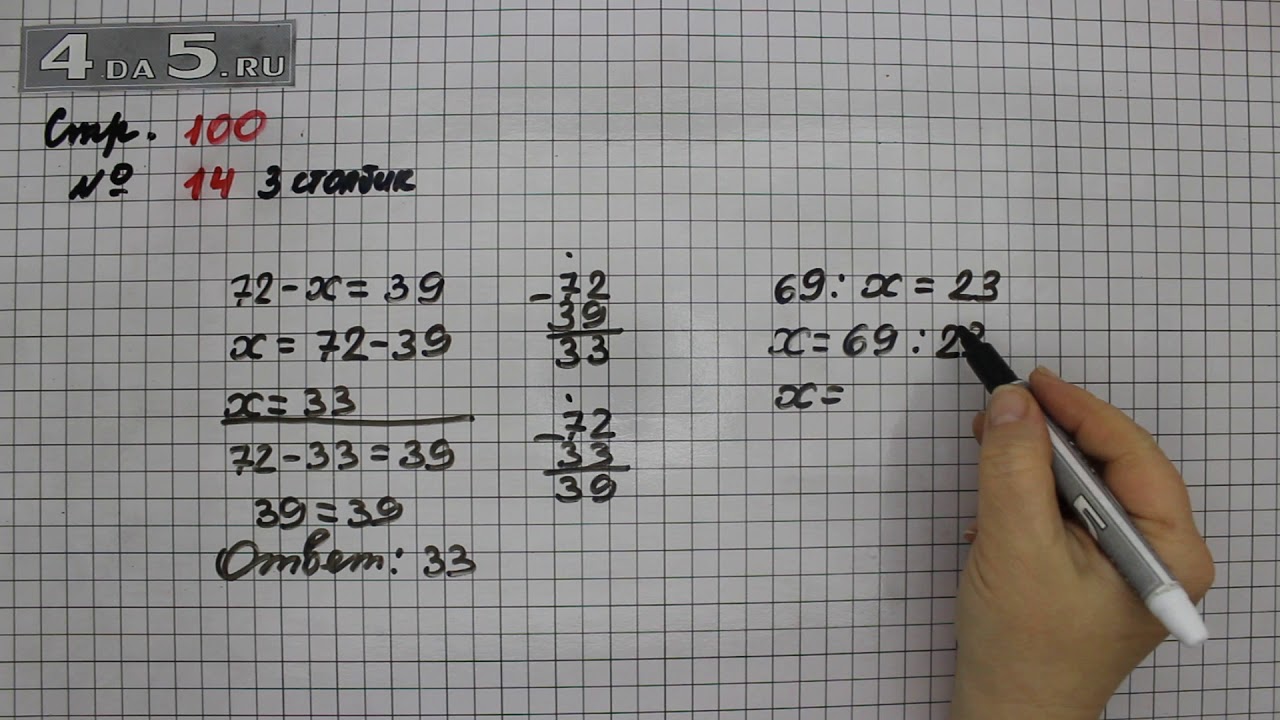 4 DA 5.RU
Стр. 100
№ 14 3 столбик
72 - x = 39
x = 72 - 39
x = 33
72 - 33 = 39
39 = 39
Ответ: 33
72
- 39
33
72
- 33
39
69 : x = 23
x = 69 : 23
x =